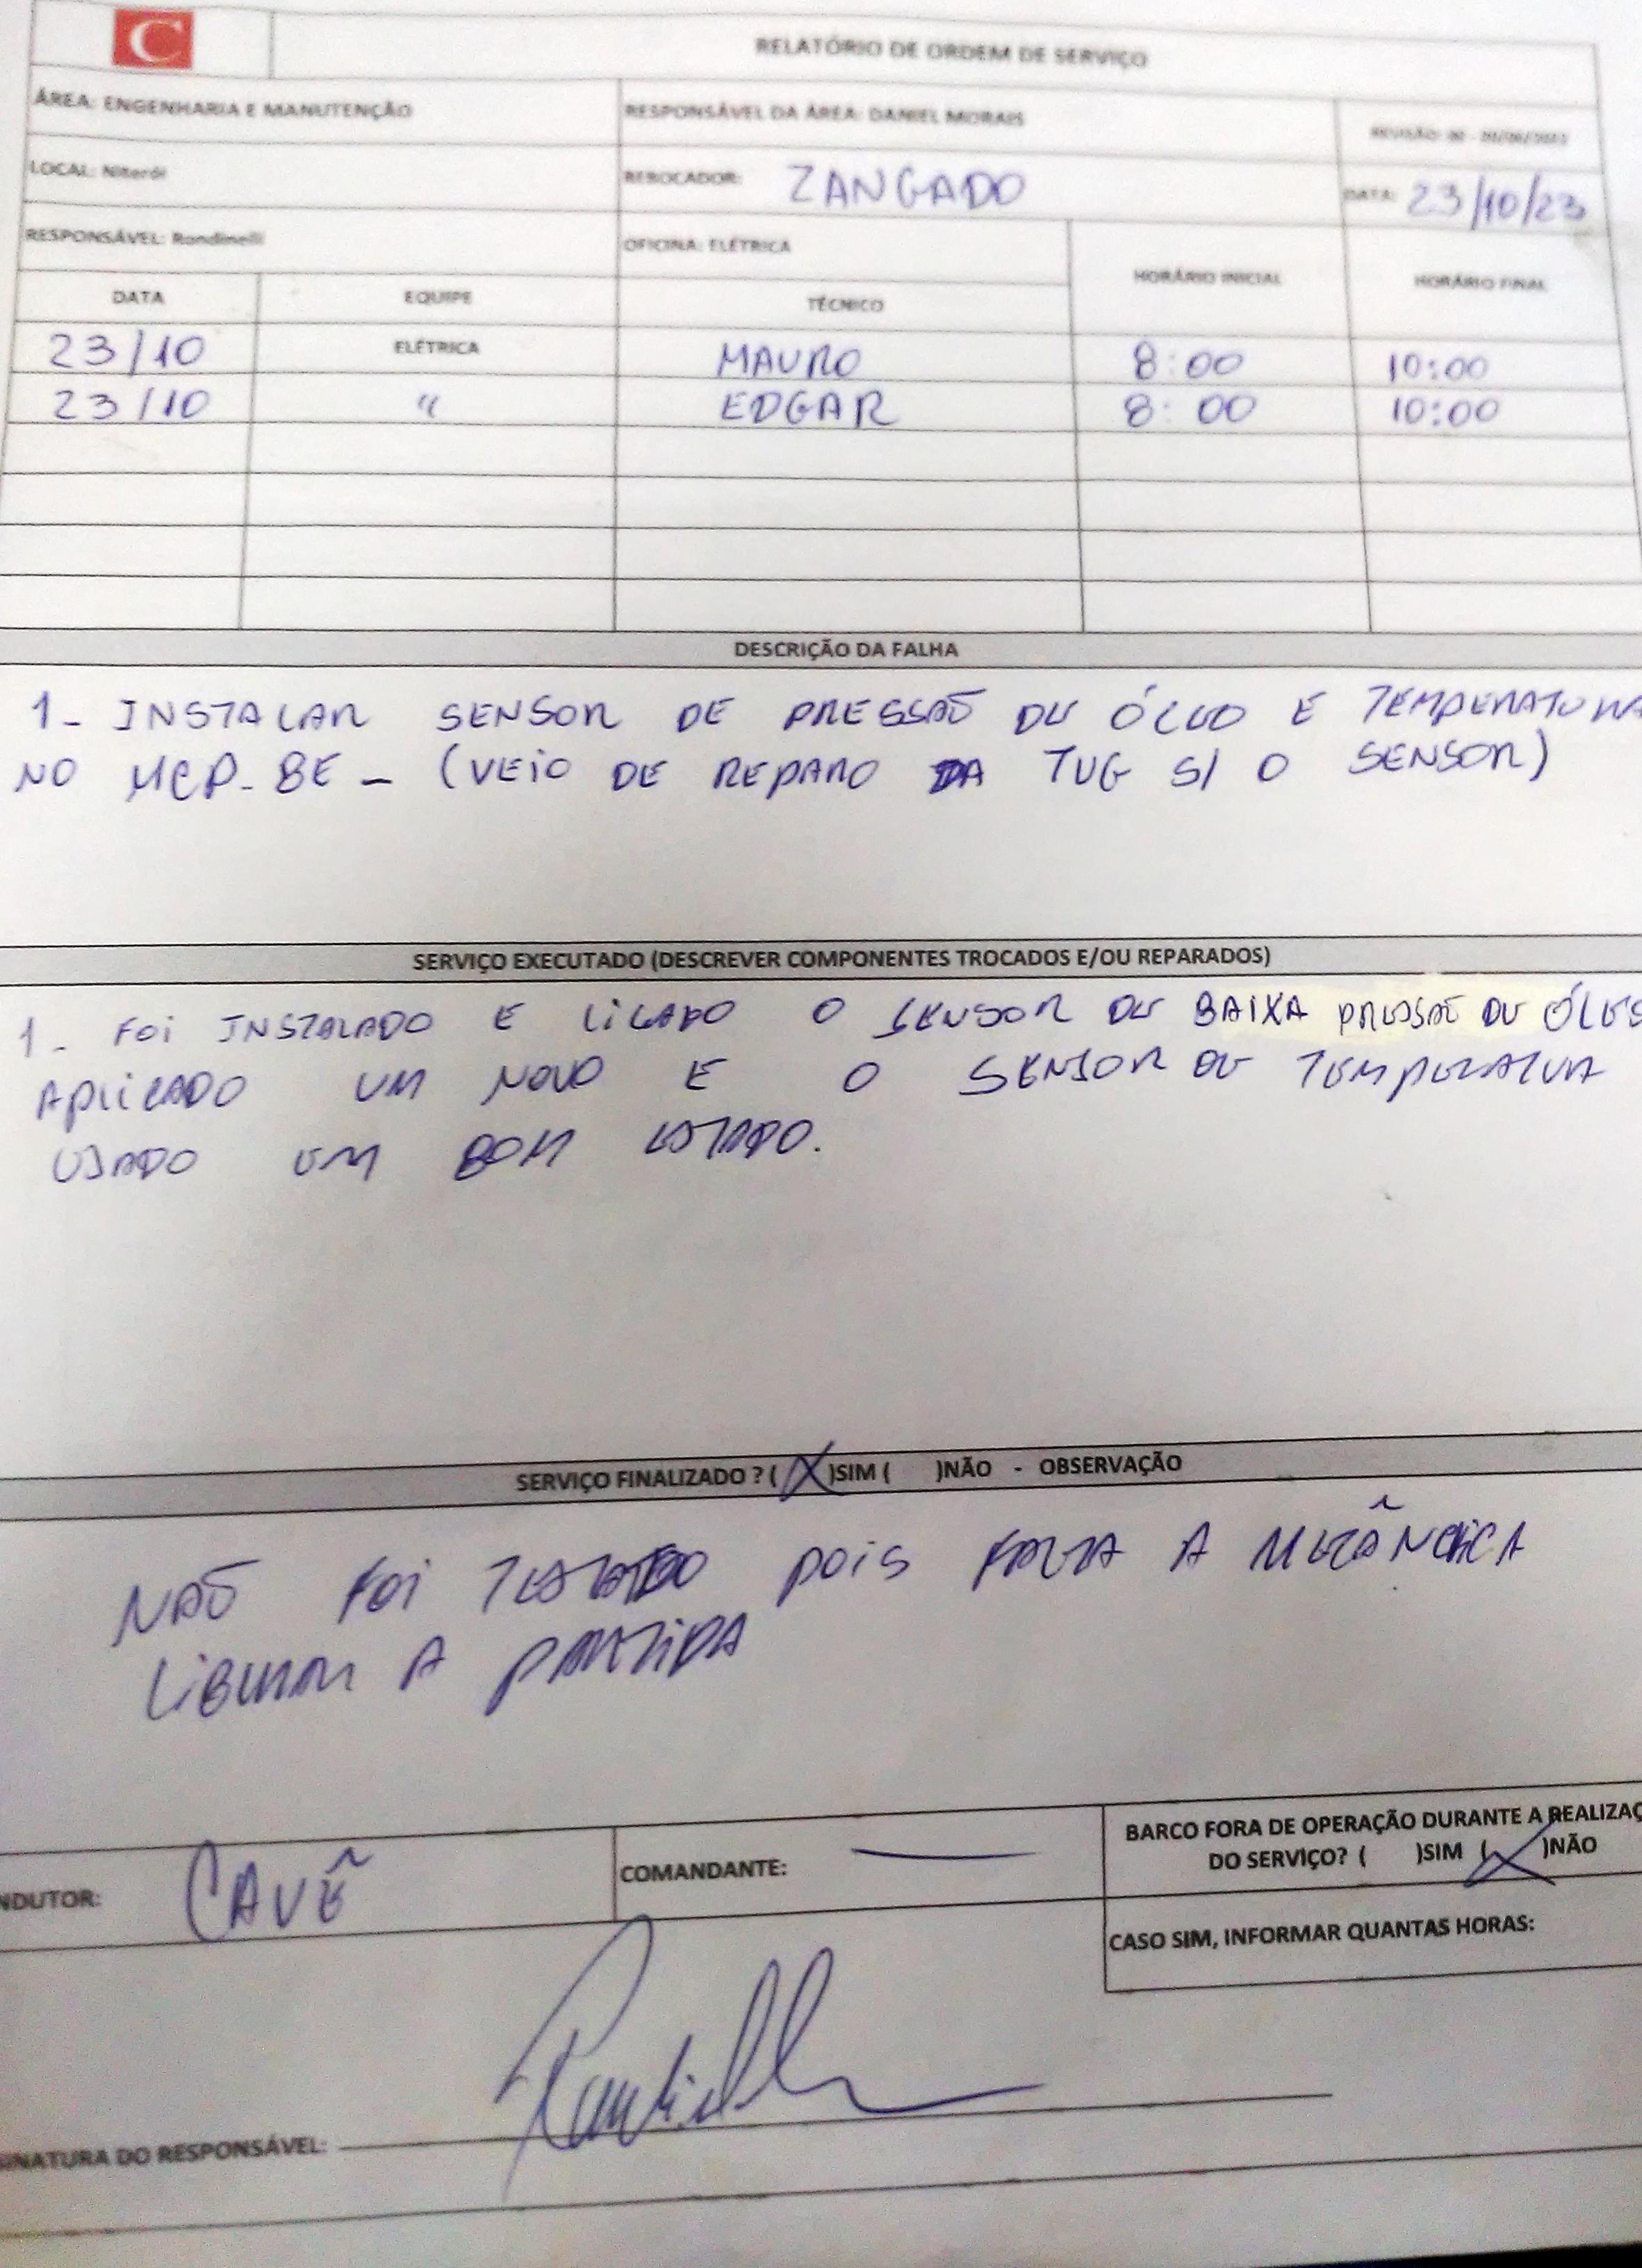 C
RELATÓRIO DE ORDEM DE SERVIÇO
ÁREA: ENGENHARIA E MANUTENÇÃO
RESPONSÁVEL DA ÁREA: DANIEL MORAIS
REVISÃO: 00 -
LOCAL: Niterói
REBOCADOR: ZANGADO
DATA: 23/10/23
RESPONSÁVEL: Rondinelli
OFICINA: ELÉTRICA
HORÁRIO INICIAL
HORÁRIO FINAL
DATA EQUIPE TÉCNICO
23/10 ELÉTRICA MAURO 8:00 10:00
23/10 " EDGAR 8:00 10:00
DESCRIÇÃO DA FALHA
1- INSTALAR SENSOR DE PRESSÃO DE ÓLEO E TEMPERATURA
NO MCP-BE - (VEIO DE REPARO DA TUG S/ O SENSOR)
SERVIÇO EXECUTADO (DESCREVER COMPONENTES TROCADOS E/OU REPARADOS)
1- FOI INSTALADO E LIGADO O SENSOR DE BAIXA PRESSÃO DE ÓLEO
APLICADO UM NOVO E O SENSOR DE TEMPERATURA
USADO EM BOM ESTADO.
SERVIÇO FINALIZADO ? (X)SIM ( )NÃO - OBSERVAÇÃO
NÃO FOI TESTADO POIS FALTA A MECÂNICA
LIBERAR A PARTIDA
NDUTOR: CAVÊ
COMANDANTE: —
BARCO FORA DE OPERAÇÃO DURANTE A REALIZAÇ
DO SERVIÇO? ( )SIM (X)NÃO
CASO SIM, INFORMAR QUANTAS HORAS:
INATURA DO RESPONSÁVEL: Rondinelli